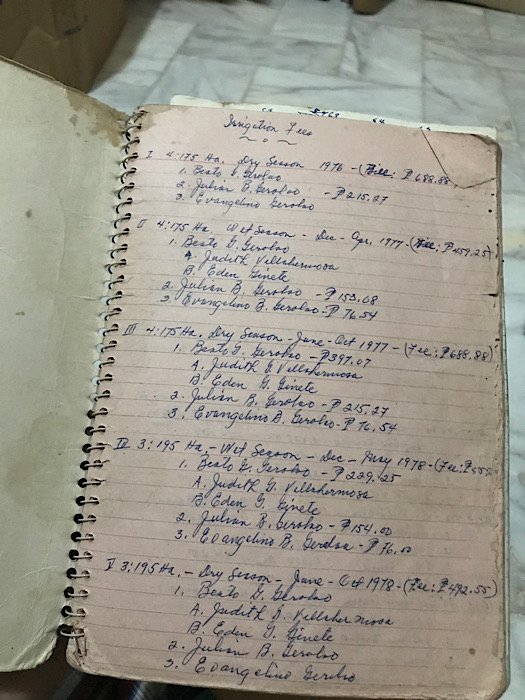 Irrigation Fees
I 4.175 Ha. Dry Season 1976 - (Fee: ₱688.88)
1. Beato G. Gerolao
2. Julian B. Gerolao - ₱215.27
3. Evangelino Gerolao
II 4.175 Ha. Wet Season - Dec - Apr. 1977 - (Fee: ₱459.25)
1. Beato G. Gerolao
A. Judith Villahermosa
B. Eden Ginete
2. Julian B. Gerolao - ₱153.08
3. Evangelino B. Gerolao - ₱76.54
III 4.175 Ha. Dry Season - June - Oct 1977 - (Fee: ₱688.88)
1. Beato G. Gerolao - ₱397.07
A. Judith G. Villahermosa
B. Eden G. Ginete
2. Julian B. Gerolao - ₱215.27
3. Evangelino B. Gerolao - ₱76.54
IV 3.195 Ha. - Wet Season - Dec - May 1978 - (Fee: ₱
1. Beato G. Gerolao - ₱229.25
A. Judith G. Villahermosa
B. Eden G. Ginete
2. Julian B. Gerolao - ₱154.00
3. Evangelino B. Gerolao - ₱76.00
V 3.195 Ha. - Dry Season - June - Oct 1978 - (Fee: ₱492.55)
1. Beato G. Gerolao
A. Judith G. Villahermosa
B. Eden G. Ginete
2. Julian B. Gerolao
3. Evangelino Gerolao